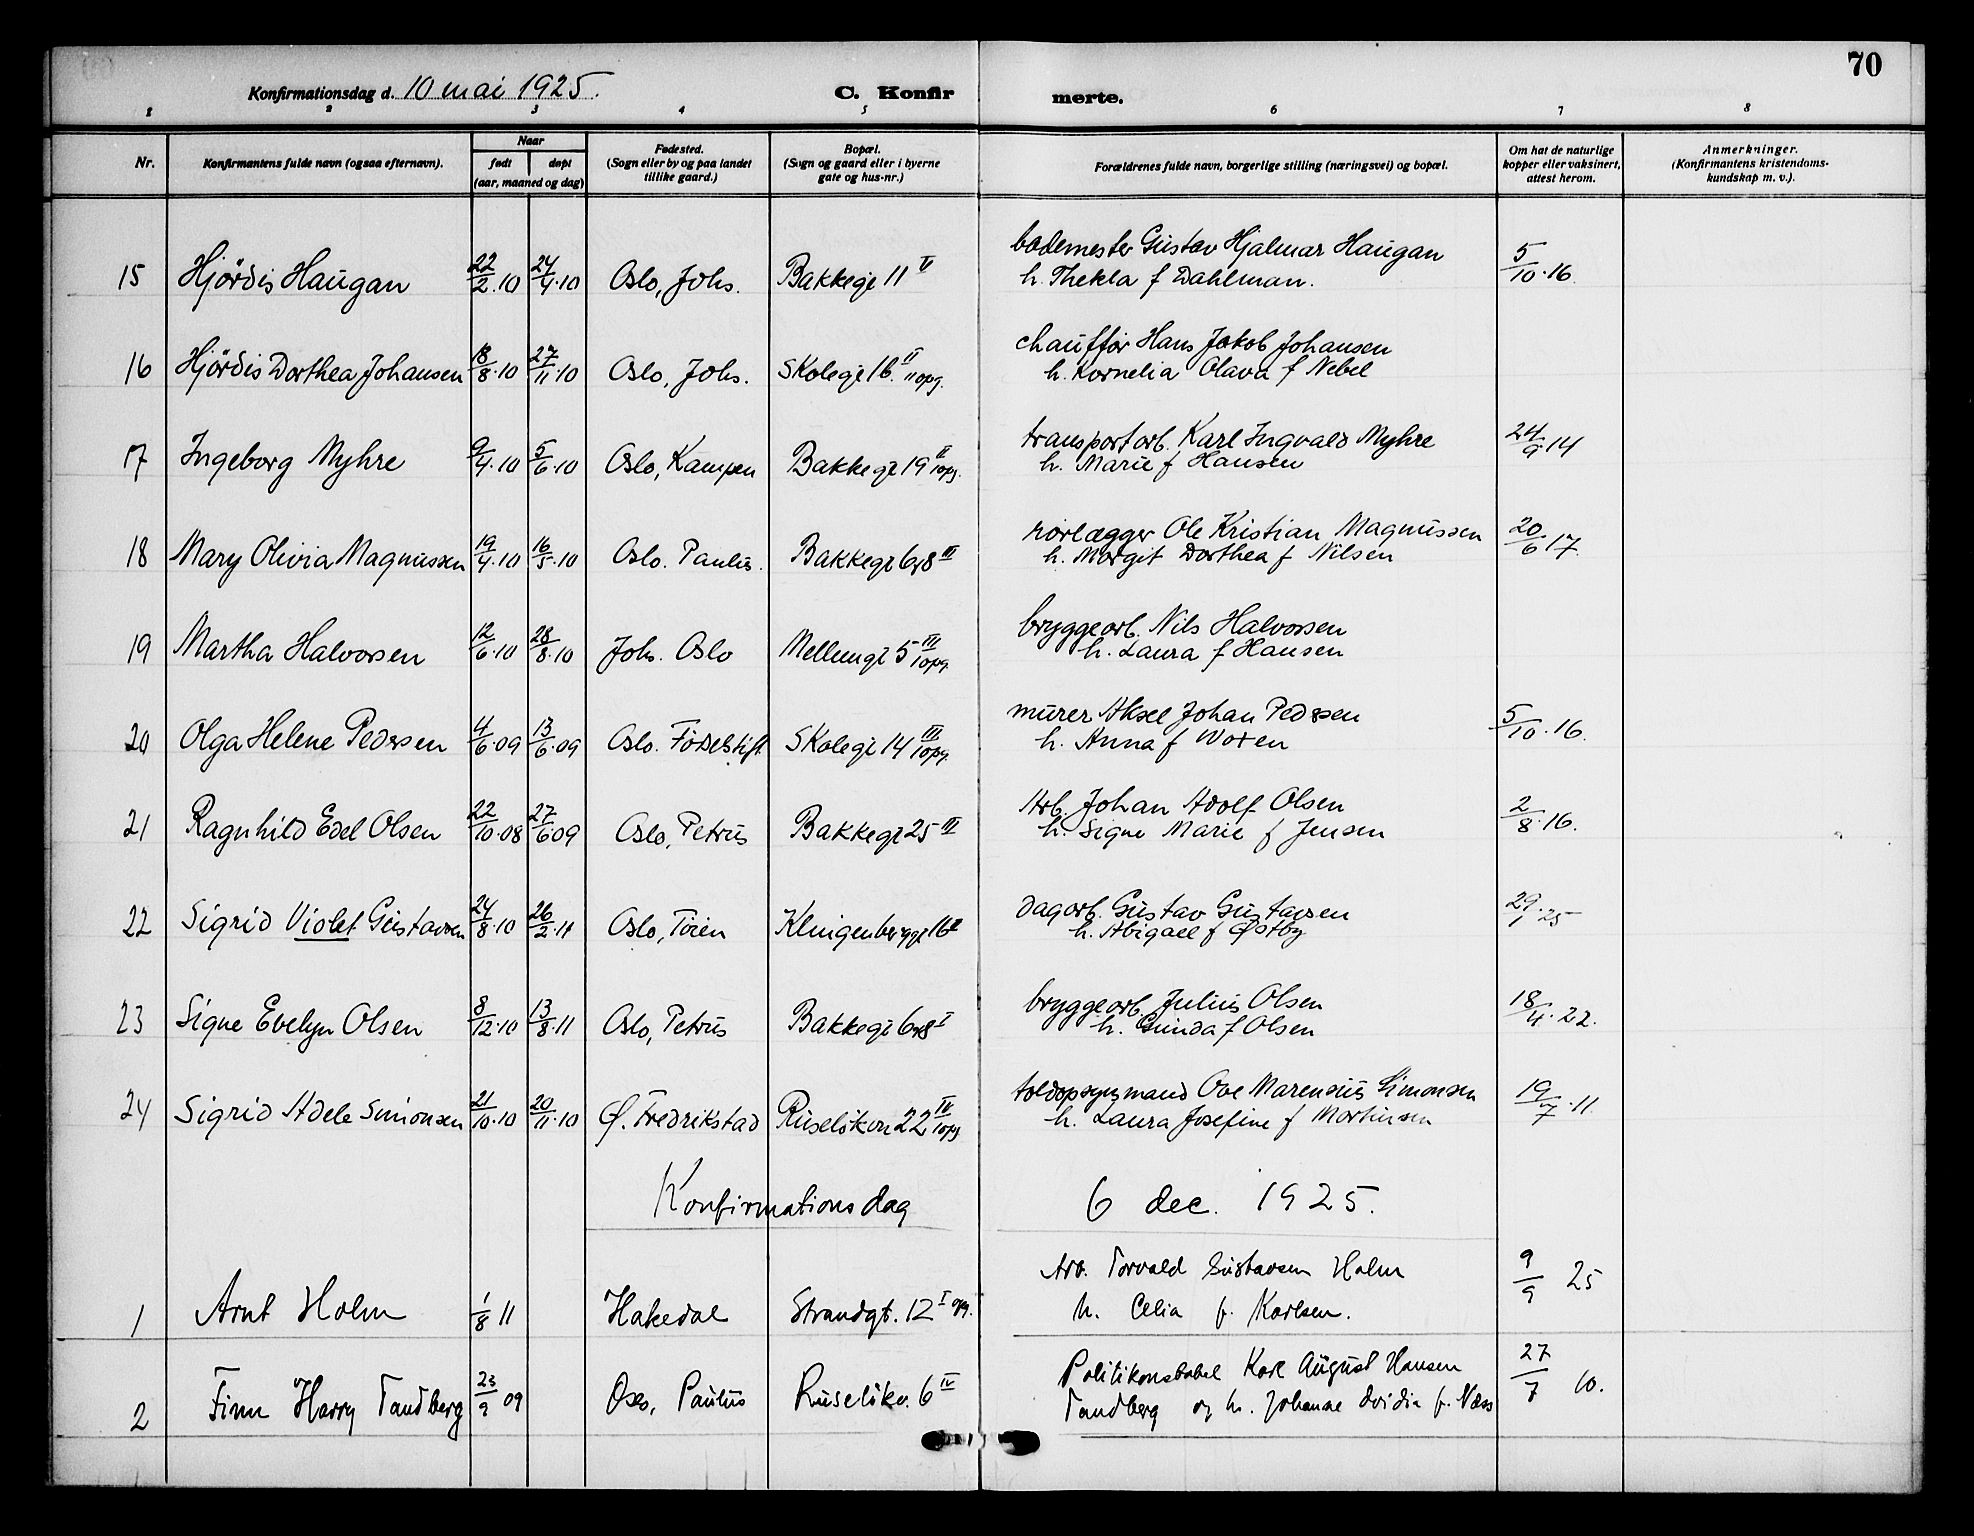 70
Konfirmationsdag d. 10 mai 1925.
C. Konfir merte.
1 2 3 4 5 6 7 8
Nr.
Konfirmantens fulde navn (ogsaa efternavn).
Naar
født døpt
(aar, maaned og dag)
Fødested.
(Sogn eller by og paa landet
tillike gaard.)
Bopæl.
(Sogn og gaard eller i byerne
gate og hus-nr.)
Forældrenes fulde navn, borgerlige stilling (næringsvei) og bopæl.
Om hat de naturlige
kopper eller vaksinert,
attest herom.
Anmerkninger.
(Konfirmantens kristendoms-
kundskap m. v.).
bademester Gustav Hjalmar Haugan
15 Hjördis Haugan 22/2.10 24/4.10 Oslo, Johs. Bakkegt 11 II h. Thekla f Dahlman. 5/10.16.
chauffør Hans Jakob Johansen
16 Hjördis Dorthea Johansen 18/8.10 27/11.10 Oslo, Johs. Skolegt 16. II opg. h. Kornelia Olava f Nebel
transportarb. Karl Ingvald Myhre
17 Ingeborg Myhre 9/4.10 5/6.10 Oslo, Kampen Bakkegt 19 II opg. h. Marie f Hansen 24/9 14
rörlægger Ole Kristian Magnussen
18 Mary Olivia Magnussen 19/4.10 16/5.10 Oslo. Paulus. Bakkegt 6&8 III h. Margit Dorthea f Nilsen 20/6 17.
bryggearb. Nils Halvorsen
19 Martha Halvorsen 12/6.10 28/8.10 Johs. Oslo Mellumgt 5 III opg. h. Laura f Hansen
murer Aksel Johan Pedersen
20 Olga Helene Pedersen 4/6.09 13/6.09 Oslo. Födselstift. Skolegt 14 III opg. h. Anna f Woxen 5/10.16.
Arb. Johan Adolf Olsen
21 Ragnhild Edel Olsen 22/10.08 27/6 09 Oslo, Petrus Bakkegt 25 III h. Signe Marie f Jensen 2/8.16.
dagarb. Gustav Gustavsen
22 Sigrid Violet Gustavsen 24/8.10 26/2.11 Oslo, Töien Klingenberggt 16 II h. Abigael f Østby 29/1.25
bryggearb. Julius Olsen
23 Signe Evelyn Olsen 8/12.10 13/8.11 Oslo, Petrus Bakkegt 6&8 I h. Gunda f Olsen 18/4.22.
toldopsynsmand Ove Marensius Simonsen
24 Sigrid Adele Simonsen 21/10.10 20/11.10 Ø. Fredrikstad Ruselökvn 22 IV opg h. Laura Josefine f Mortinsen 19/7.11.
Konfirmationsdag 6 dec. 1925.
Arb. Torvald Gustavsen Holm
1 Arnt Holm 1/8 11 Hakedal Strandgt. 12 I og. h. Celia f. Karlsen. 9/9 25
Politikonstabel Karl August Hansen
2 Finn Harry Tandberg 23/9 09 Oslo, Paulus Ruselökv. 6 IV Tandberg og h. Johanne f. Næss 27/7 10.